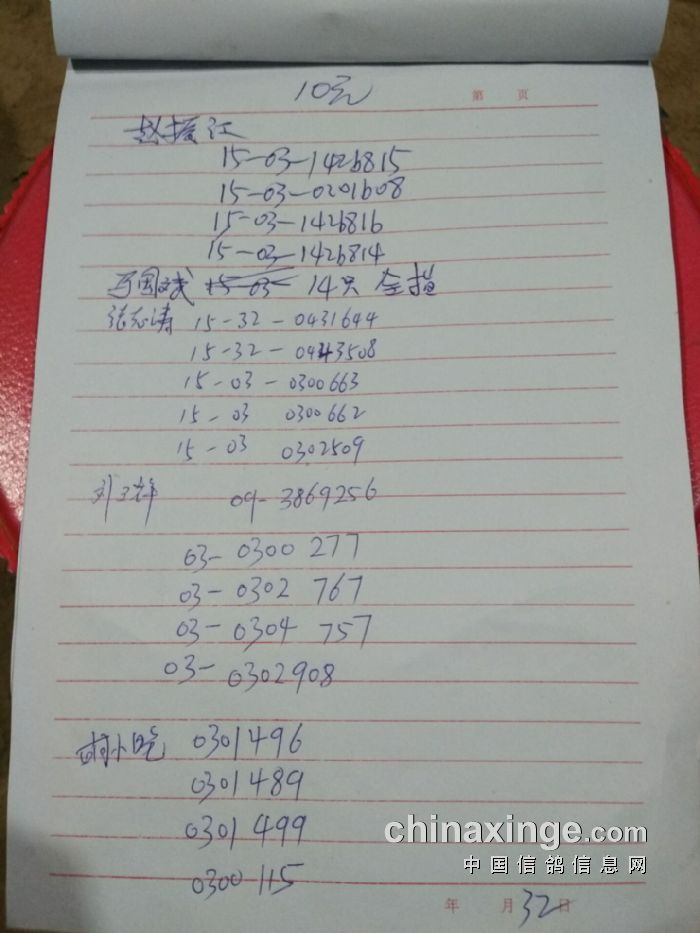 10元
第 页
赵振江
15-03-1426815
15-03-0201608
15-03-1426816
15-03-1426814
15-03 14只 全指
张志涛 15-32-0431644
15-32-0443508
15-03-0300663
15-03 0300662
15-03 0302509
09-3869256
03-0300 277
03-0302 767
03-0304 757
03-0302908
0301496
0301489
0301499
0300115
chinaxinge.com
中国信鸽信息网
年 月32日